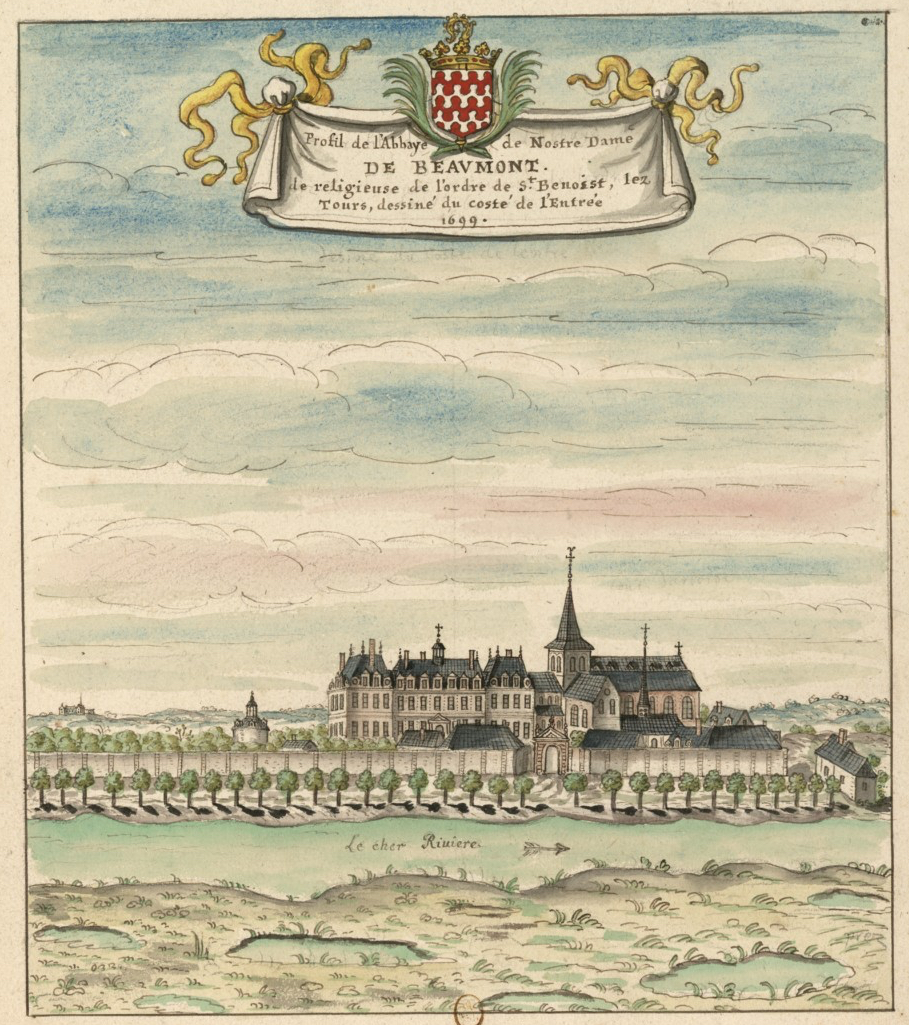 Profil de l'Abbaye de Nostre Dame
DE BEAVMONT.
de religieuse de l'ordre de St. Benoist, lez
Tours, dessiné du costé de l'Entrée
1699.
Le cher Riuiere